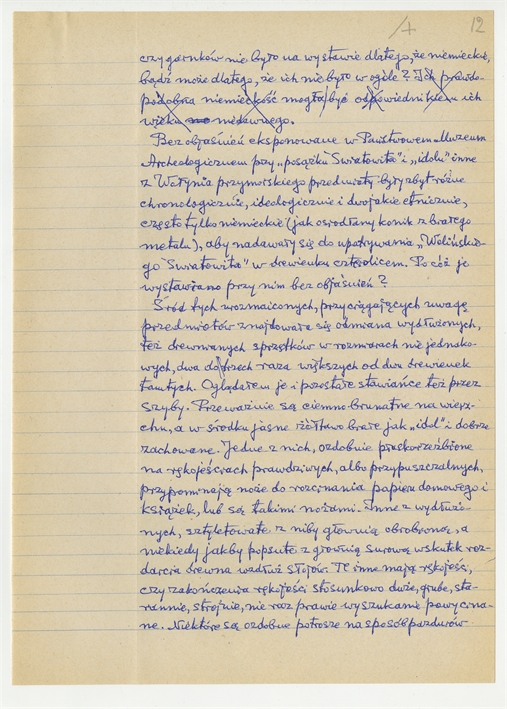 12
czy garnków nie było na wystawie dlatego, że niemieckie,
bądź może dlatego, że ich nie było w ogóle? Ich prawdo-
podobna niemieckość mogła być odpowiednikiem ich
wieku niedawnego.
Bez objaśnień eksponowane w Państwowem Muzeum
Archeologicznem przy „posążku Światowita" i „idolu" inne
z Wolynia przymorskiego przedmioty były zbyt różne
chronologicznie, ideologicznie i dwojakie etnicznie,
często tylko niemieckie (jak osiodłany konik z białego
metalu), aby nadawały się do upatrywania „Wolińskie-
go Światowita" w drewienku czterolicem. Po cóż je
wystawiano przy nim bez objaśnień?
Śród tych urozmaiconych, przyciągających uwagę
przedmiotów znajdowała się odmiana wydłużonych,
też drewnianych sprzętków w rozmiarach nie jednako-
wych, dwa do trzech raza większych od dwu drewienek
tamtych. Oglądałem je i pozostałe stawiańce też przez
szyby. Przeważnie są ciemno-brunatne na wierz-
chu, a w środku jasne żółtawo białe jak „idol" i dobrze
zachowane. Jedne z nich, ozdobnie płaskorzeźbione
na rękojeściach prawdziwych, albo przypuszczalnych,
przypominają noże do rozcinania papieru domowego i
książek, lub są takimi nożami. Inne z wydłużo-
nych, sztyletowate z niby głownią obrobioną, a
niekiedy jakby popsute z głownią surową wskutek roz-
darcia drewna wzdłuż słojów. Te inne mają rękojeść,
czy zakończenia rękojeści stosunkowo duże, grube, sta-
rannie, strojnie, nie raz prawie wyszukanie powycina-
ne. Niektóre są ozdobne potrosze na sposób pazdurów